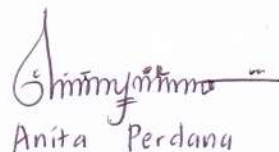 Anita Perdana